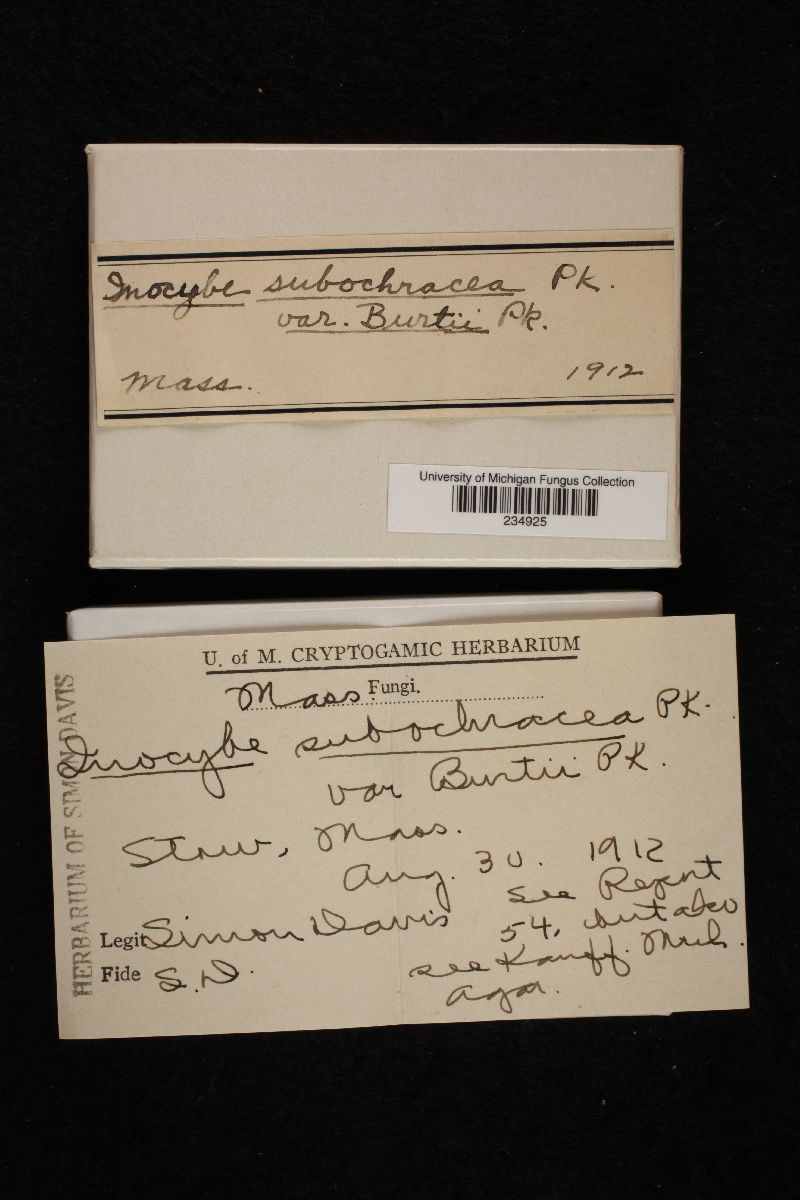 Inocybe subochracea Pk.
var. Burtii Pk.
Mass. 1912
University of Michigan Fungus Collection
234925
U. of M. CRYPTOGAMIC HERBARIUM
Mass Fungi.
Inocybe subochracea Pk.
var Burtii Pk.
Stow, Mass.
Aug. 30. 1912
see Report
54, but also
see Kauff. Mich.
Agar.
Legit Simon Davis
Fide S.D.
HERBARIUM OF SIMON DAVIS